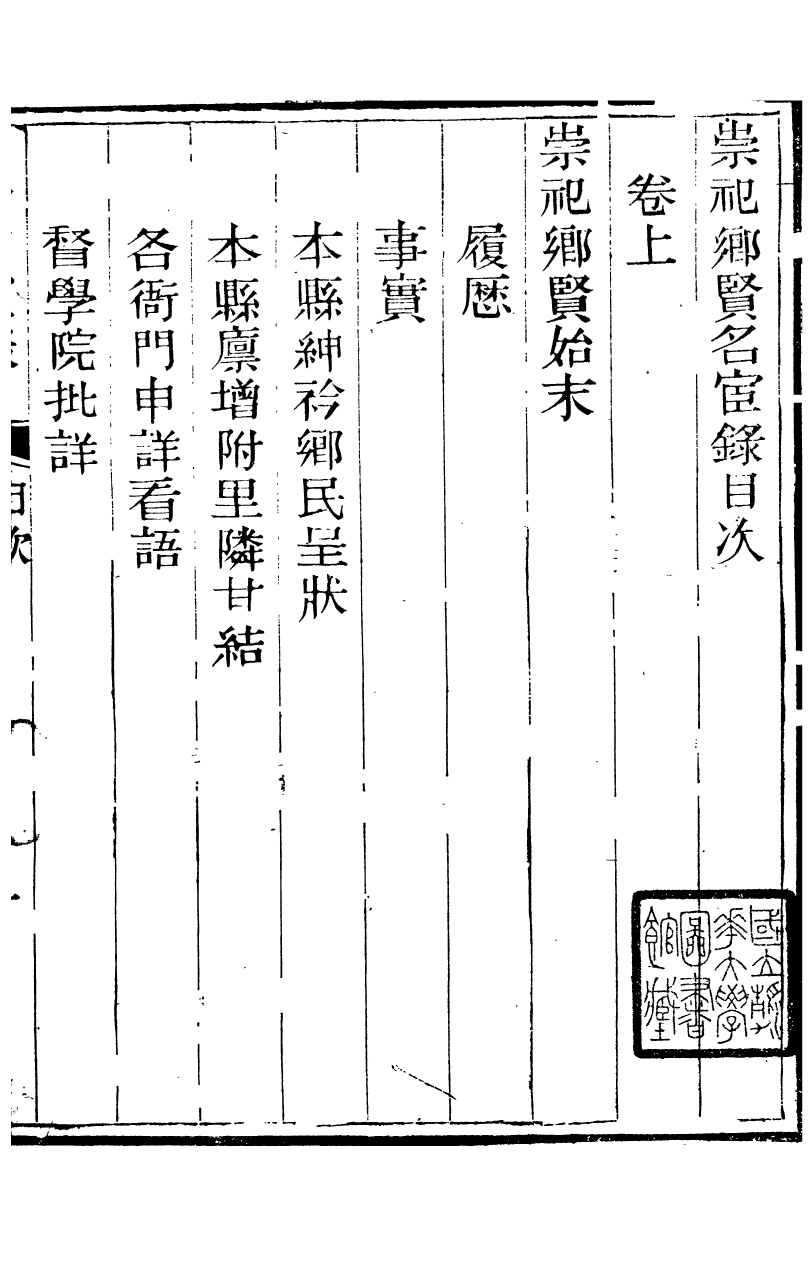 崇祀鄉賢名宦錄目次
卷上
崇祀鄉賢始末
履歷
事實
本縣紳衿鄉民呈狀
本縣廪增附里隣甘結
各衙門申詳看語
督學院批詳
目次
國立清
華大學
圖書
館藏